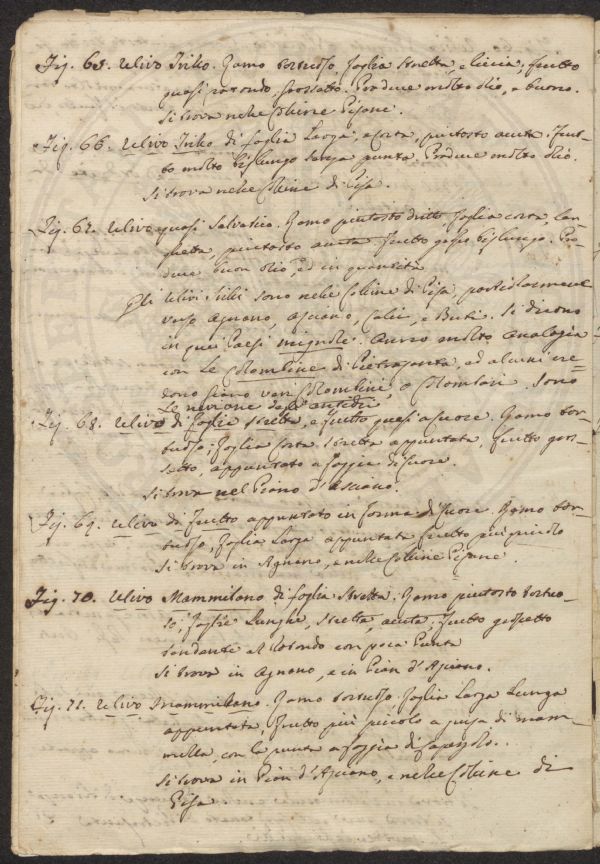 Fig. 65. Ulivo Inko. Ramo tortuoso, foglia stretta, e liscia; frutto
quasi rotondo. Produce molto olio, e buono.
Si trova nelle Colline Pisane.
Fig. 66. Ulivo Inko di foglia Larga, e corta, piutosto acuta. Frut-
to molto bislungo senza punta. Produce molto olio.
Si trova nelle Colline di Pisa.
Fig. 67. Ulivo quasi Salvatico. Ramo piutosto dritto, foglia corta, Lar-
ghetta piutosto acuta frutto grosso bislungo. Pro-
duce buon olio, ed in quantità
Gli Ulivi Inki sono nelle Colline di Pisa, particolarmente
verso Agnano, Asciano, Calci, e Buti. Si dicono
in quei Paesi mignoli. Anno molto analogia
con Le Colombine di Pietrasanta, ed alcuni cre-
dono siano veri Colombini, o Colombari. Sono
Le nerone degl'antichi
Fig. 68. Ulivo di foglia stretta, e frutto quasi a Cuore. Ramo tor-
tuoso; foglia corta stretta appuntata, frutto gros-
setto, appuntato a foggia di Cuore.
Si trova nel Piano d'Asciano.
Fig. 69. Ulivo di frutto appuntato in forma di Cuore. Ramo tor-
tuoso, foglia Larga appuntata frutto più piccolo
Si trova in Agnano, e nelle Colline Pisane.
Fig. 70. Ulivo Mammilano di foglia stretta. Ramo piutosto tortuo-
so; foglie Lunghe, strette, acute; frutto grossetto
tendente al rotondo con poca Punta
Si trova in Agnano, e in Pian d'Asciano.
Fig. 71. Ulivo Mammilano. Ramo tortuoso. foglia Larga Lunga
appuntata, frutto più piccolo a guisa di mam-
milla, con la punta a foggia di Capezzolo.
Si trova in Pian d'Asciano, e nelle Colline di
Pisa